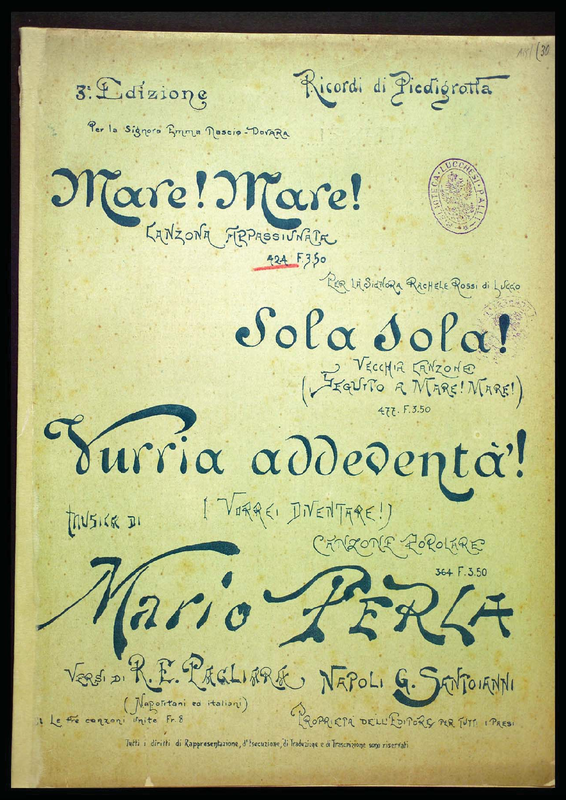 3ª Edizione
Ricordi di Piedigrotta
Per la Signora Emma Roscio-Dovara
Mare! Mare!
CANZONA APPASSIUNATA
424 F.3,50
PER LA SIGNORA RACHELE ROSSI di LUCCO
Sola sola!
VECCHIA CANZONE
(SEGUITO A MARE! MARE!)
477. F.3.50
Vurria addeventà'!
(VORREI DIVENTARE!)
MUSICA DI
CANZONE POPOLARE
364 F.3.50
Mario PERLA
VERSI DI R.E. PAGLIARA
NAPOLI G. SANTOIANNI
(Napolitani ed italiani)
Le tre canzoni unite Fr. 8
PROPRIETÀ DELL'EDITORE PER TUTTI I PAESI
Tutti i diritti di Rappresentazione, d'Esecuzione, di Traduzione e di Trascrizione sono riservati
BIBLIOTECA LUCCHESI PALLI